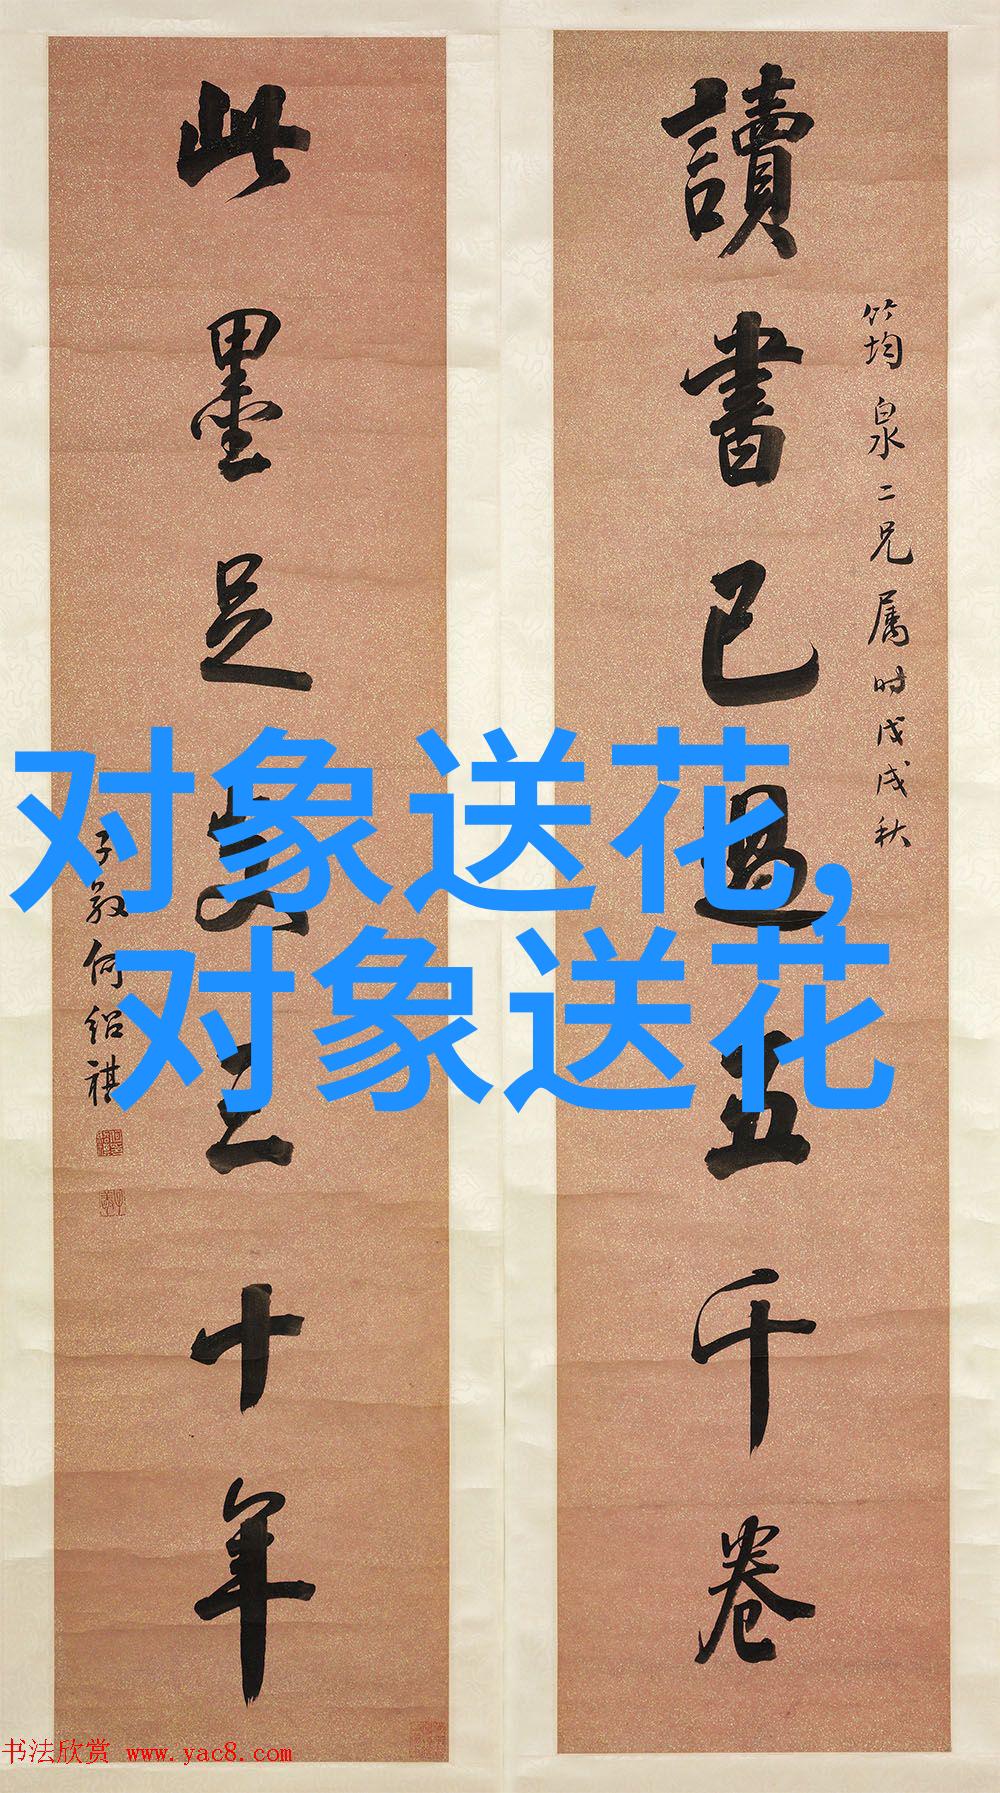 讀書已過五千卷
竹均泉二兄属時戊戌秋
此墨足支三十年
子敬何绍祺
对象送花,
对象送花
书法欣赏 www.yac8.com